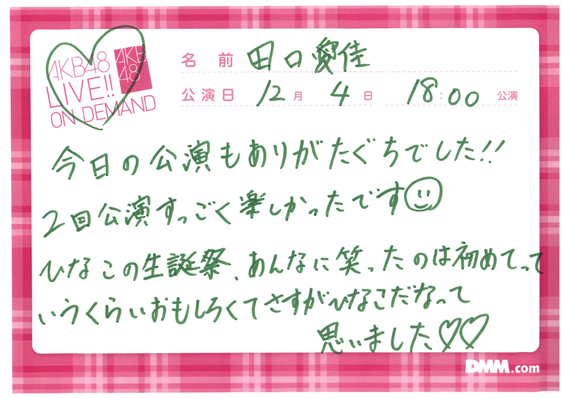 AKB48
LIVE!!
ON DEMAND
AKB
48
名前 田口愛佳
公演日 12月 4日 18:00 公演
今日の公演もありがたぐちでした!!
2回公演すっごく楽しかったです
ひなこの生誕祭、あんなに笑ったのは初めてって
いうくらいおもしろくてさすがひなこだなって
思いました♡♡
DMM.com